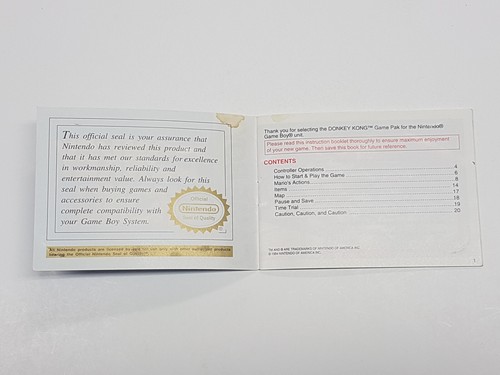 This official seal is your assurance that
Nintendo has reviewed this product and
that it has met our standards for excellence
in workmanship, reliability and
entertainment value. Always look for this
seal when buying games and
accessories to ensure
complete compatibility with
your Game Boy System.
Official
Nintendo
Seal of Quality
All Nintendo products are licensed by sale for use only with other authorized products
bearing the Official Nintendo Seal of Quality.
Thank you for selecting the DONKEY KONG™ Game Pak for the Nintendo®
Game Boy® unit.
Please read this instruction booklet thoroughly to ensure maximum enjoyment
of your new game. Then save this book for future reference.
CONTENTS
Controller Operations 4
How to Start & Play the Game 6
Mario's Actions 8
Items 14
Map 17
Pause and Save 18
Time Trial 19
Caution, Caution, and Caution 20
TM AND ® ARE TRADEMARKS OF NINTENDO OF AMERICA INC.
© 1994 NINTENDO OF AMERICA INC.
1